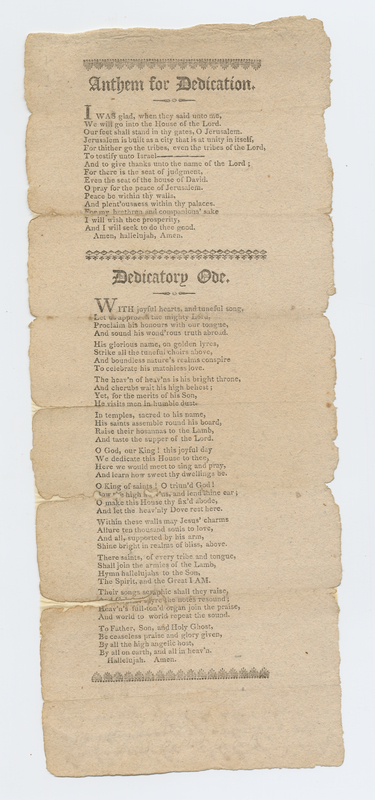 Anthem for Dedication.
I WAS glad, when they said unto me,
We will go into the House of the Lord.
Our feet shall stand in thy gates, O Jerusalem.
Jerusalem is built as a city that is at unity in itself,
For thither go the tribes, even the tribes of the Lord,
To testify unto Israel————
And to give thanks unto the name of the Lord;
For there is the seat of judgment,
Even the seat of the house of David.
O pray for the peace of Jerusalem.
Peace be within thy walls,
And plent'ousness within thy palaces.
For my brethren and companions' sake
I will wish thee prosperity,
And I will seek to do thee good.
Amen, hallelujah, Amen.
Dedicatory Ode.
WITH joyful hearts, and tuneful song,
Let us approach the mighty Lord,
Proclaim his honours with our tongue,
And sound his wond'rous truth abroad.
His glorious name, on golden lyres,
Strike all the tuneful choirs above,
And boundless nature's realms conspire
To celebrate his matchless love.
The heav'n of heav'ns is his bright throne,
And cherubs wait his high behest;
Yet, for the merits of his Son,
He visits men in humble dust.
In temples, sacred to his name,
His saints assemble round his board,
Raise their hosannas to the Lamb,
And taste the supper of the Lord.
O God, our King! this joyful day
We dedicate this House to thee,
Here we would meet to sing and pray,
And learn how sweet thy dwellings be.
O King of saints! O triun'd God!
Bow the high heav'ns, and lend thine ear;
O make this House thy fix'd abode,
And let the heav'nly Dove rest here.
Within these walls may Jesus' charms
Allure ten thousand souls to love,
And all, supported by his arm,
Shine bright in realms of bliss, above.
There saints, of every tribe and tongue,
Shall join the armies of the Lamb,
Hymn hallelujahs to the Son,
The Spirit, and the Great I AM.
Their songs seraphic shall they raise,
lyre the notes resound;
Heav'n's full-ton'd organ join the praise,
And world to world repeat the sound.
To Father, Son, and Holy Ghost,
Be ceaseless praise and glory given,
By all the high angelic host,
By all on earth, and all in heav'n.
Hallelujah. Amen.